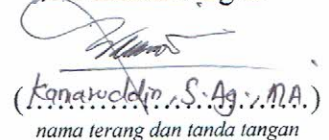 (Kamaruddin, S.Ag., MA.)
nama terang dan tanda tangan